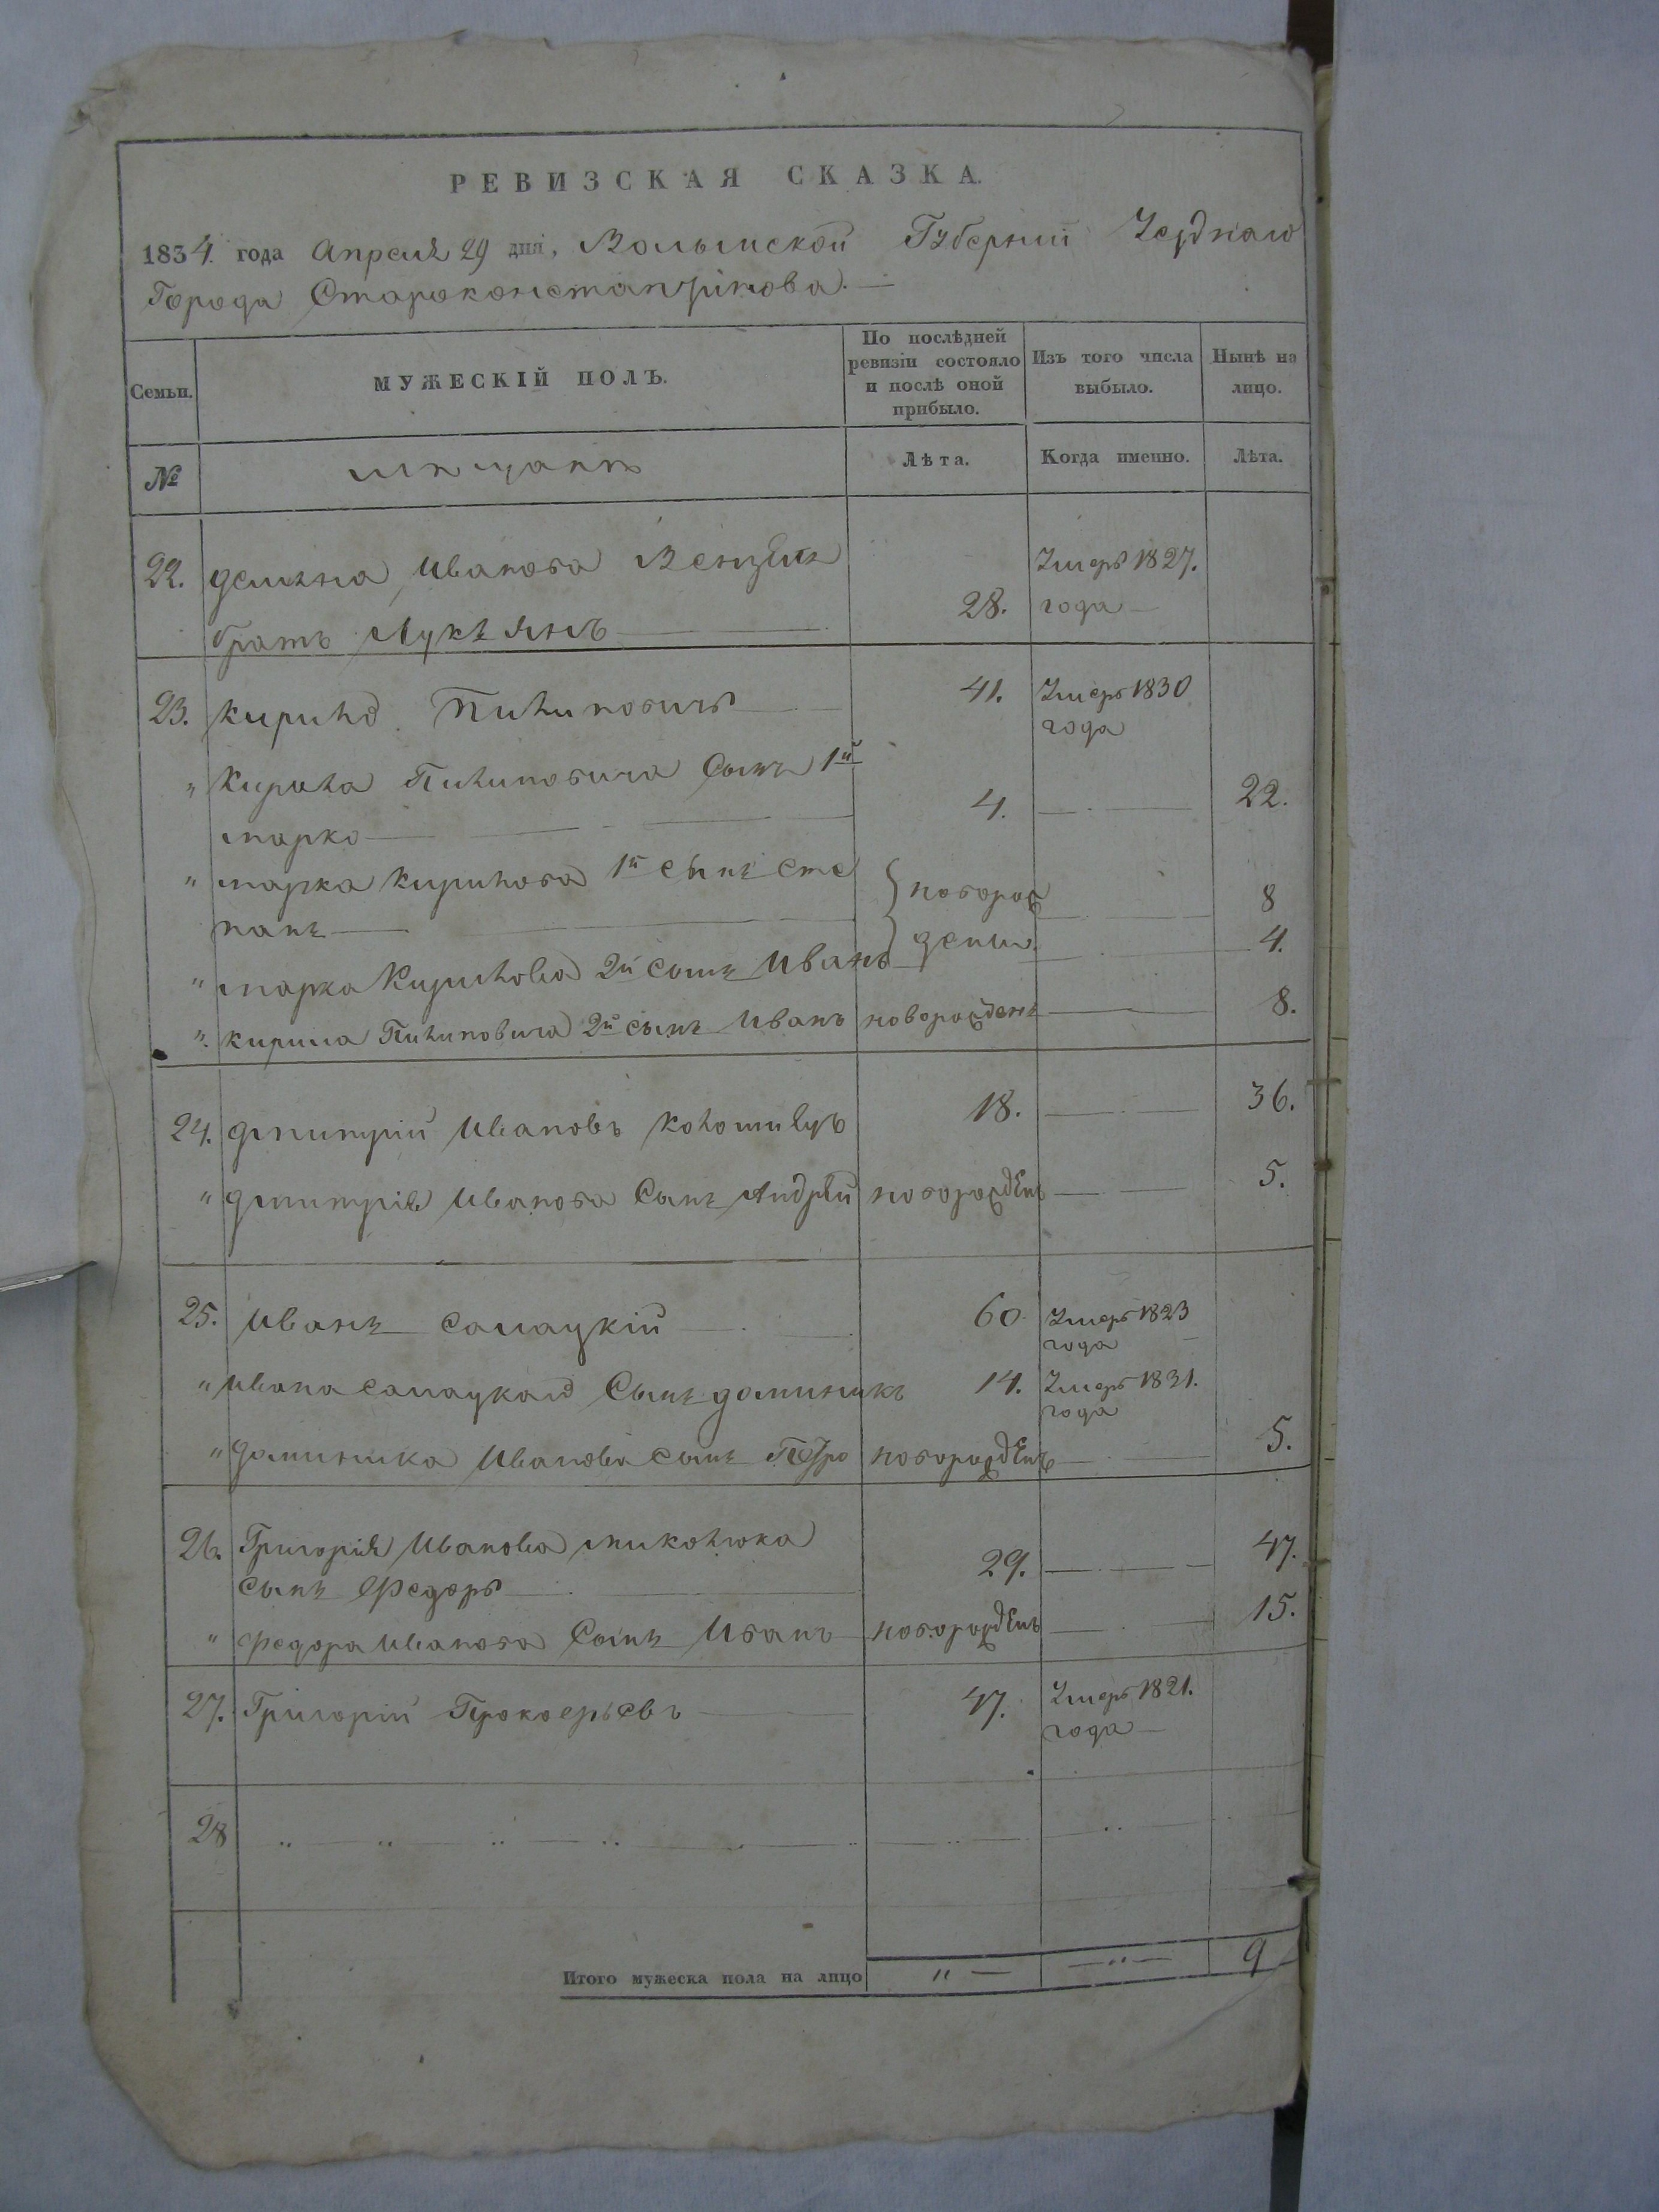 РЕВИЗСКАЯ СКАЗКА.
1834. года Апреля 29 дня, Волынской Губернии Уезднаго
Города Староконстантинова.—
Семьи.
МУЖЕСКІЙ ПОЛЪ.
По послѣдней ревизіи состояло и послѣ оной прибыло.
Изъ того числа выбыло.
Нынѣ на лицо.
№
мещанъ
Лѣта.
Когда именно.
Лѣта.
22. Иванова
братъ Лукъянъ 28. Умеръ 1827. года
23. Кирило Пилиповичъ 41. Умеръ 1830 года
" Кирила Пилиповича Сынъ 1й
марко 4. 22.
" марка Кирилова 1й сынъ Сте
панъ новорож 8
" марка Кирилова 2й сынъ Иванъ дены. 4.
". кирила Пилиповича 2й сынъ Иванъ новорожденъ 8.
24. дмитрій Ивановъ Коломиецъ 18. 36.
" дмитрія Иванова Сынъ Андрей новорожденъ 5.
25. Иванъ Салацкій 60. Умеръ 1823 года
" Ивана Салацкаго Сынъ доминикъ 14. Умеръ 1831. года
" доминика Иванова сынъ Петро новорожденъ 5.
26. Григорія Иванова миколюка
сынъ Федоръ 29. 47.
" Федора Иванова Сынъ Иванъ новорожденъ 15.
27. Григорій Прокофьевъ 47. Умеръ 1821. года
28
Итого мужеска пола на лицо " — —"— 9